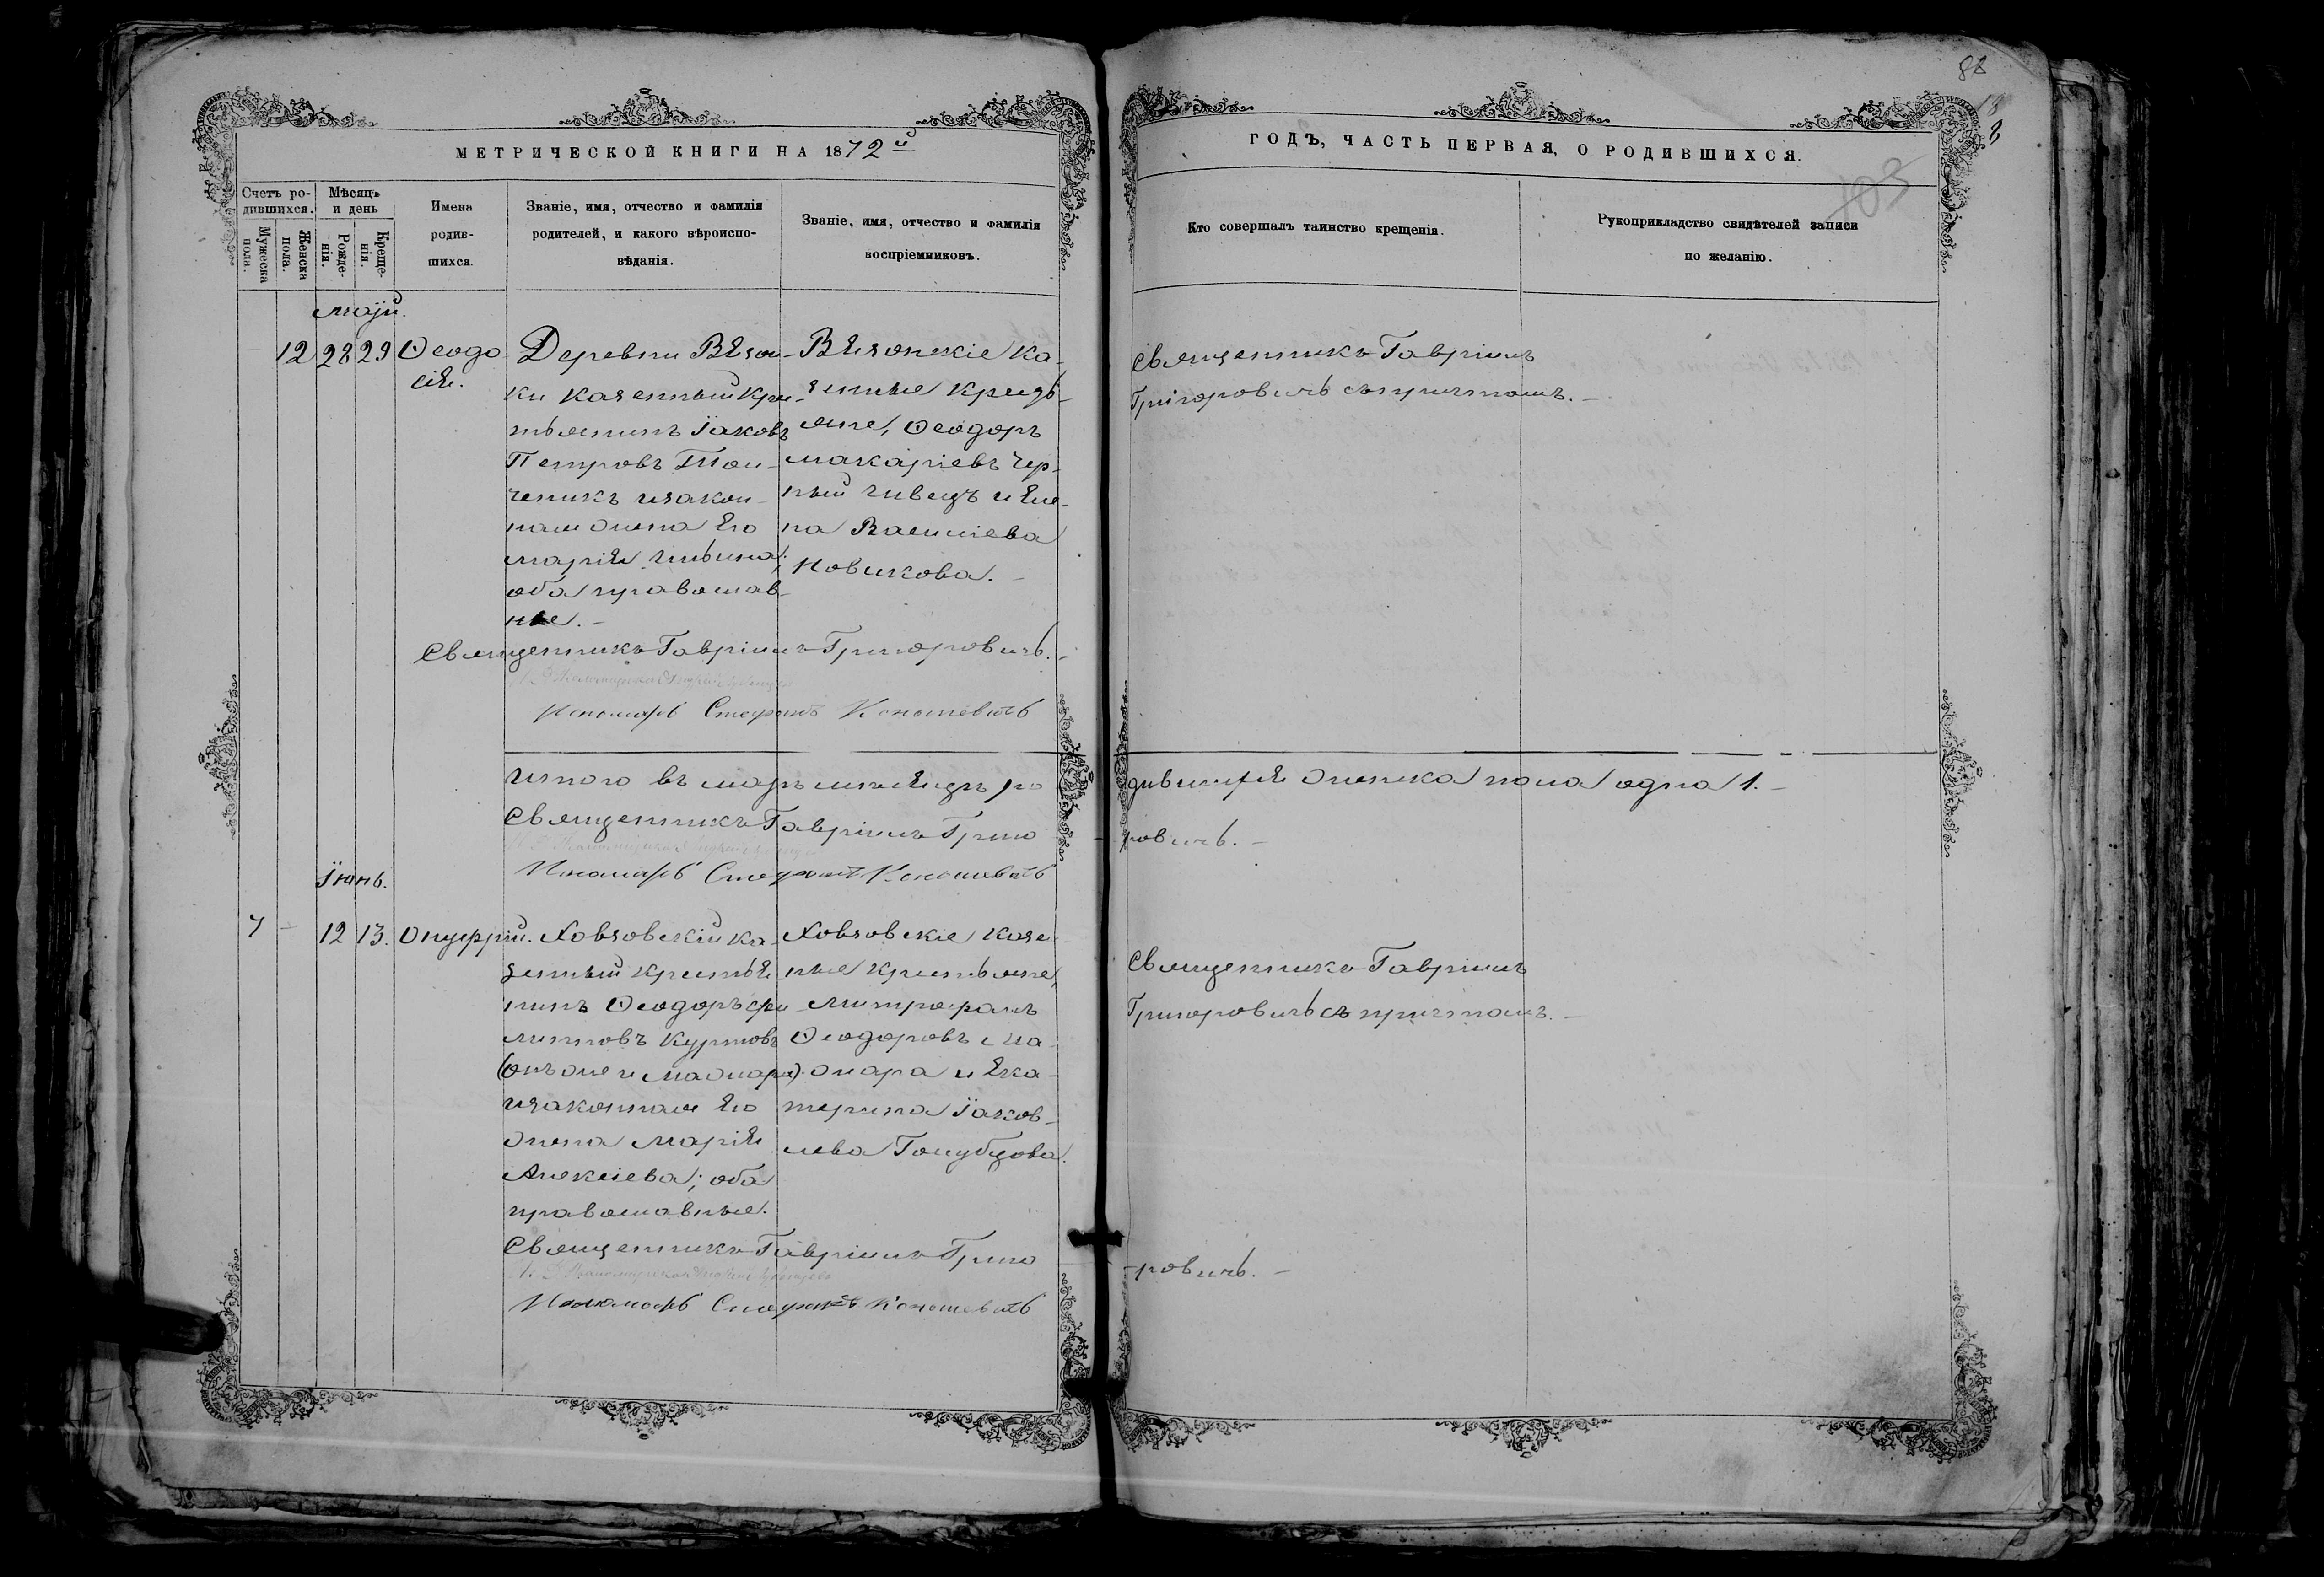 88
18
103
МЕТРИЧЕСКОЙ КНИГИ НА 1872й
ГОДЪ, ЧАСТЬ ПЕРВАЯ, О РОДИВШИХСЯ.
Счетъ ро-
дившихся.
Мужеска
пола.
Женска
пола.
Мѣсяцъ
и день
Рожде-
нія.
Креще-
нія.
Имена
родив-
шихся.
Званіе, имя, отчество и фамилія
родителей, и какого вѣроиспо-
вѣданія.
Званіе, имя, отчество и фамилія
воспріемниковъ.
Кто совершалъ таинство крещенія.
Рукоприкладство свидѣтелей записи
по желанію.
Маій.
12 28 29
Ѳеодо
сія.
Деревни
ки казенный кре-
стьянинъ Іаковъ
Петровъ
и закон-
ная жена его
Марія
оба православ-
ные. –
ка-
зенные кресть-
яне, Ѳеодоръ
Макаріевъ Чер-
ный и Еле-
на Василіева
Новикова. –
Священникъ Гавріилъ
Григоровичъ съ причтомъ. –
Священникъ Гавріилъ Григоровичъ. –
Пономарь Стефанъ
Итого въ маѣ мѣсяцѣ ро
дившаяся женска пола одна 1. –
Священникъ Гавріилъ Григо
ровичъ. –
Пономарь Стефанъ
Іюнь.
7 – 12 13.
Онуфрій.
Ховзовскій ка-
зенный крестья
нинъ Ѳеодоръ Фи
липповъ Куртовъ
и законная его
жена Марія
Алексіева; оба
православные.
Ховзовскіе казен
ные крестьяне,
Митрофанъ
Ѳеодоровъ Ма
жара и Ека-
терина Іаков-
лева Голубцова.
Священникъ Гавріилъ
Григоровичъ съ причтомъ. –
Священникъ Гавріилъ Григо
ровичъ. –
Пономарь Стефанъ